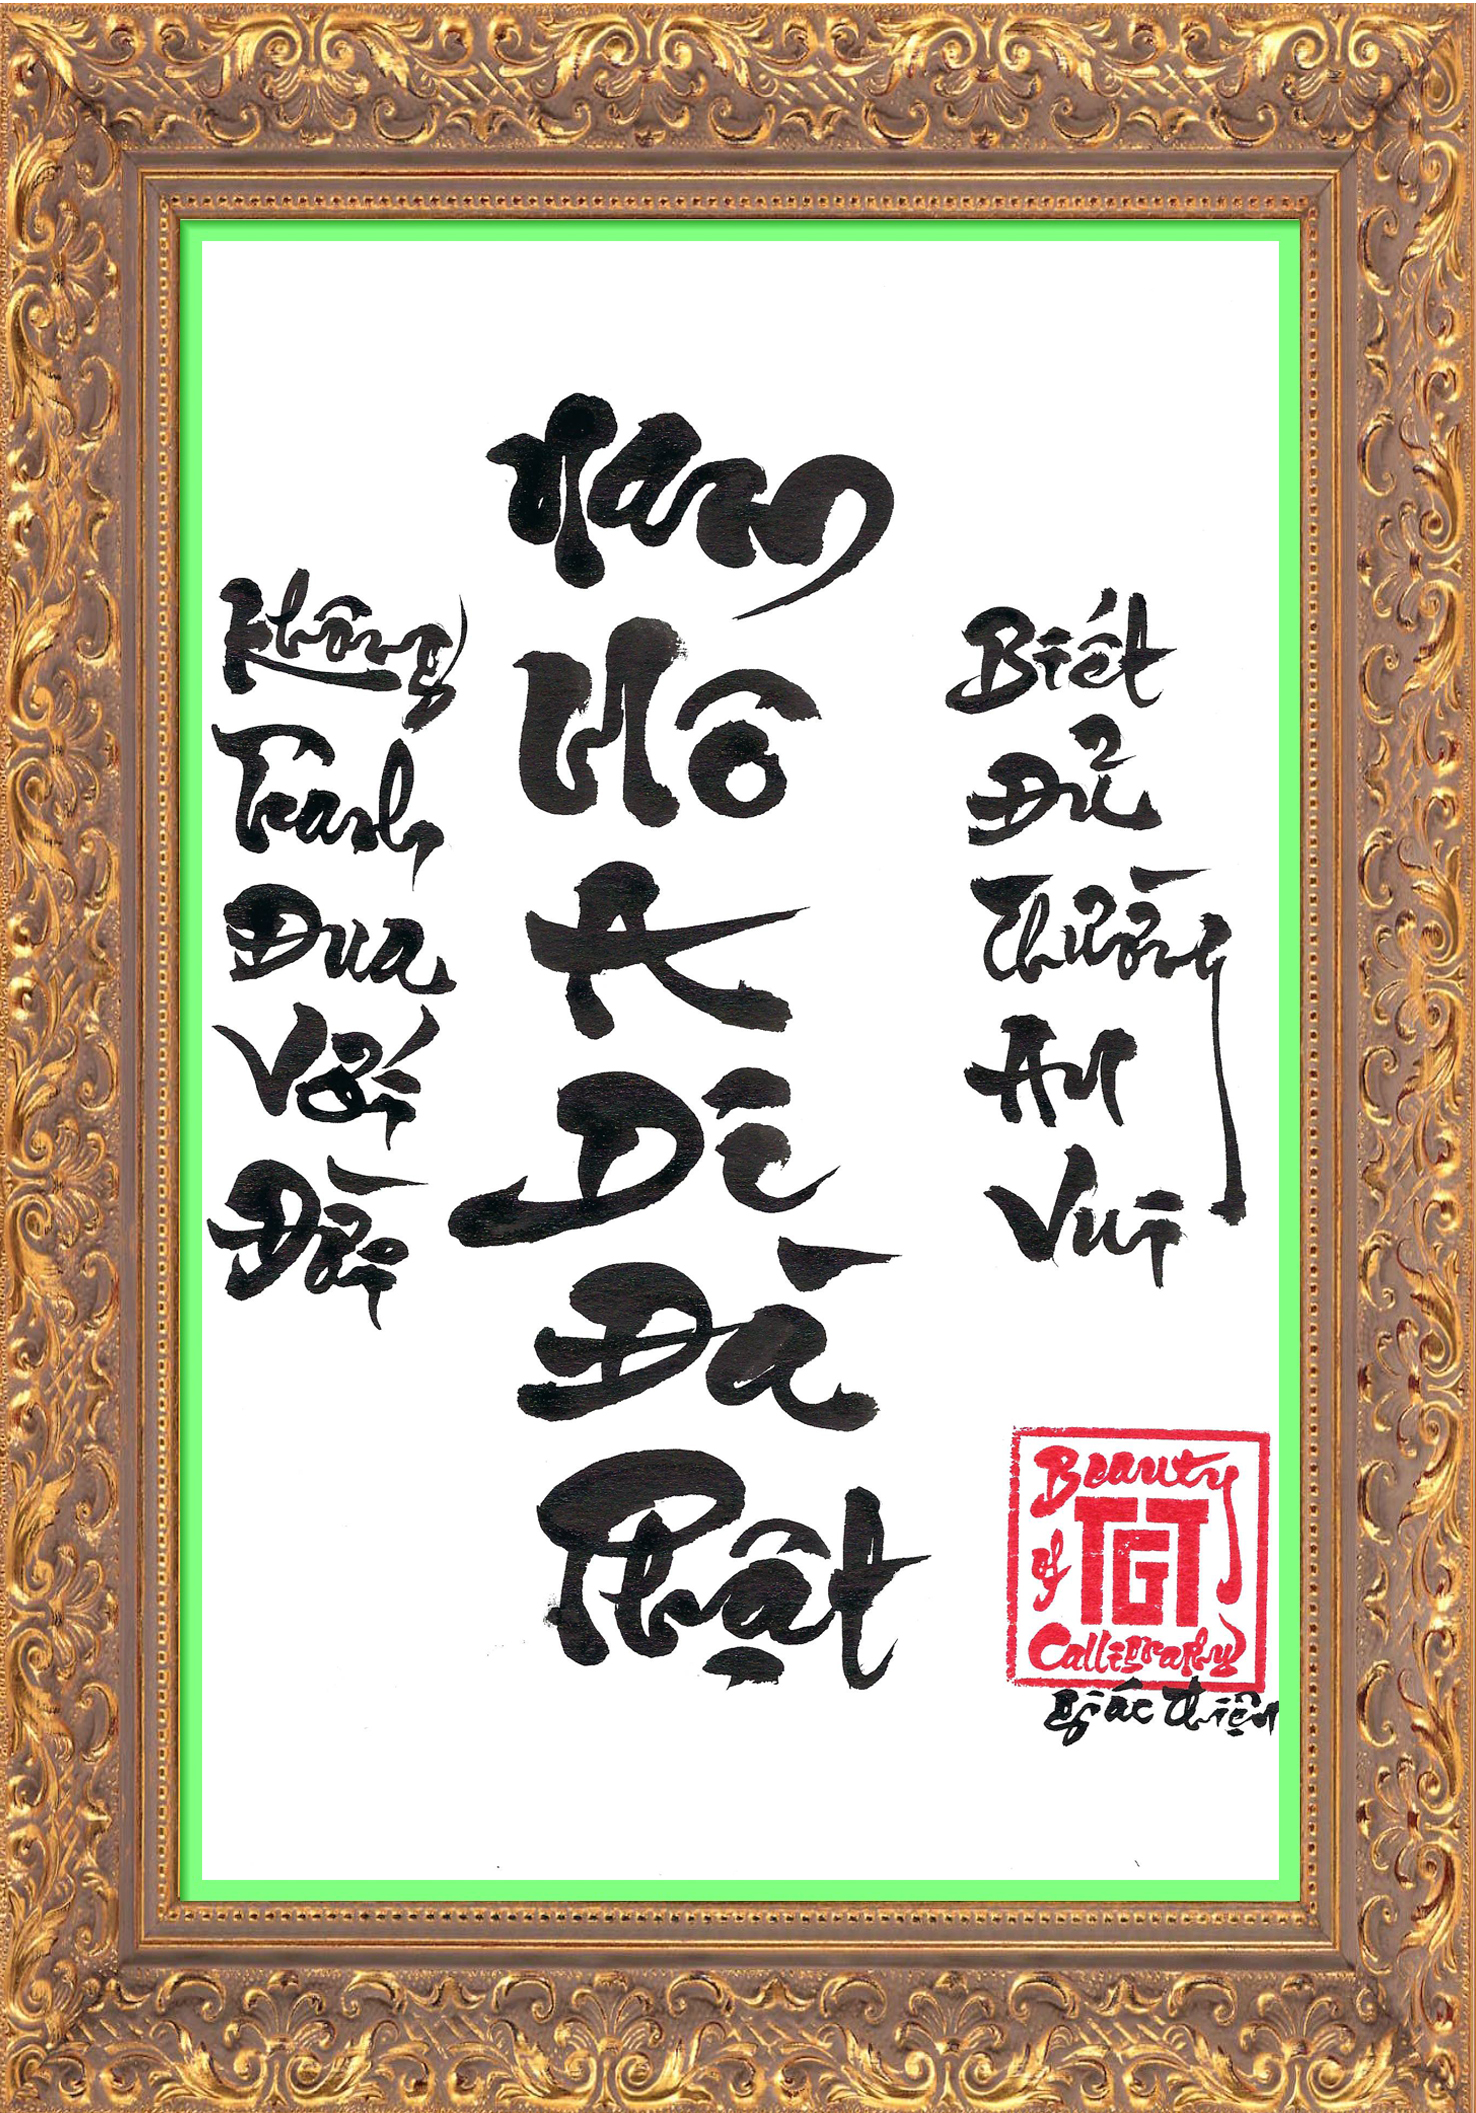 Nam
Mô
A
Di
Đà
Phật
Không
Tranh
Đua
Với
Đời
Biết
Đủ
Thường
An
Vui
Beauty
of TGT
Calligraphy
giác thiện